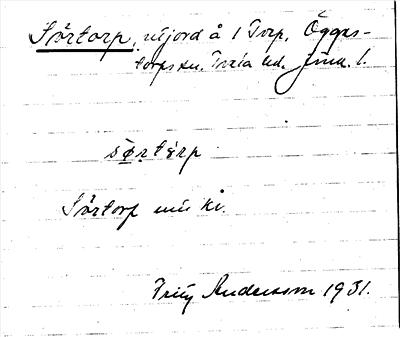 Sörtorp, utjord å 1 Torp, Öggес-
torps sn. Tveta hd. Jönk. l.
sö̱rtɐrp
Sörtorp
Fritz Andersson 1931.